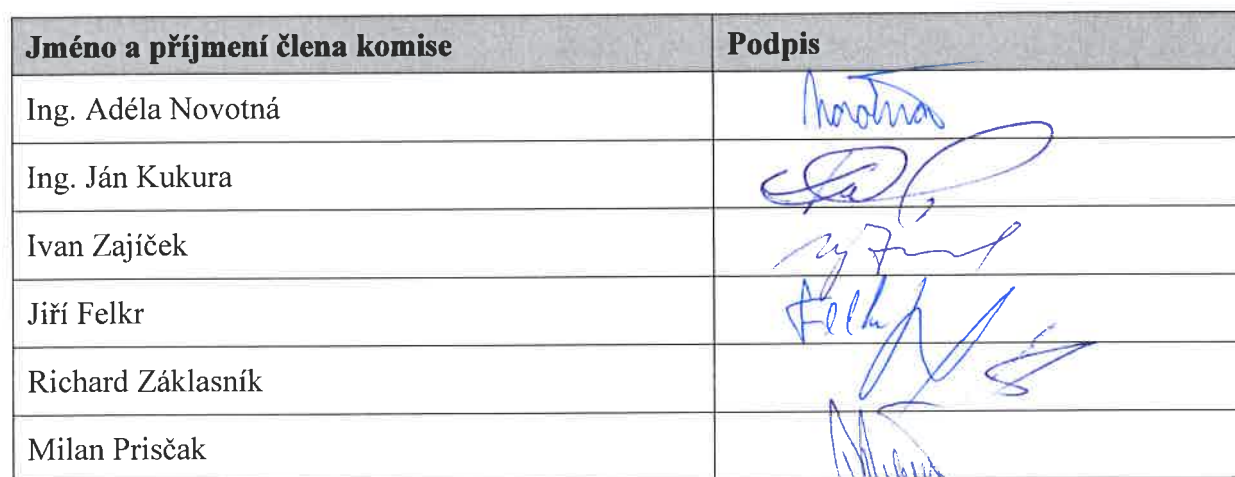 Jméno a příjmení člena komise Podpis
Ing. Adéla Novotná
Ing. Ján Kukura
Ivan Zajíček
Jiří Felkr
Richard Záklasník
Milan Prisčak